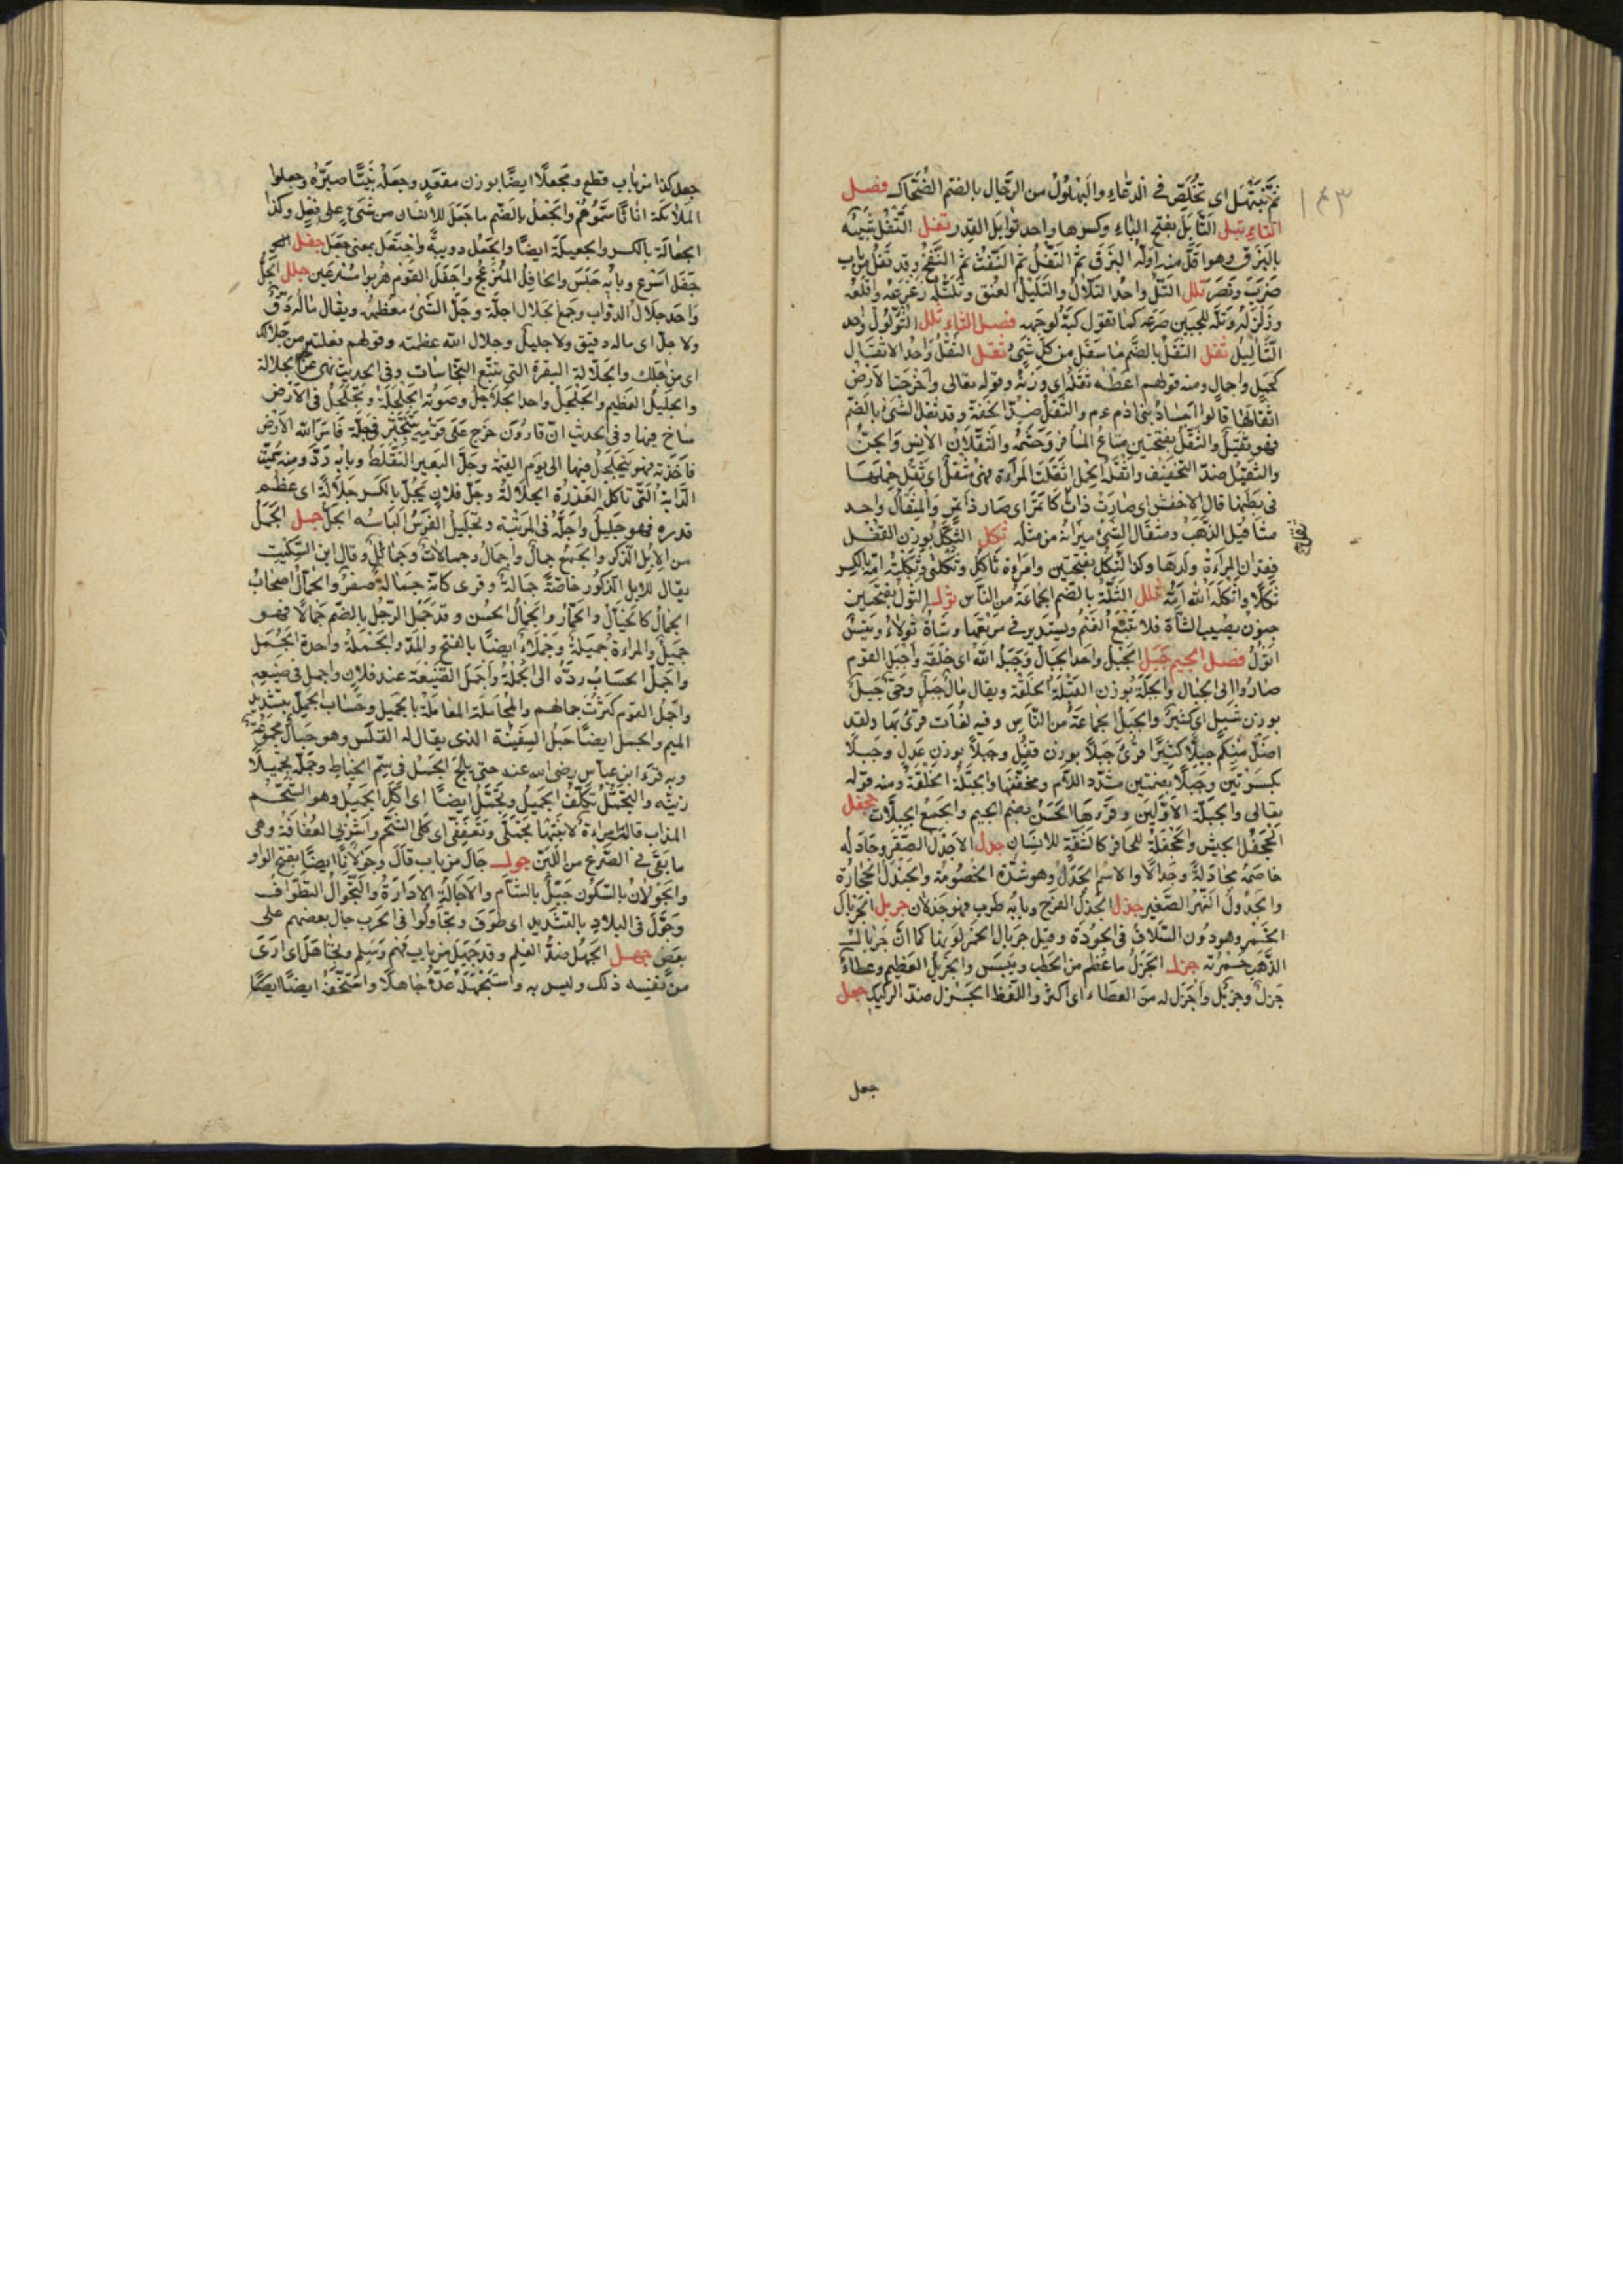 ثم نبتهل اى نخلص فى الدعاء والبهلول من الرجال بالضم الضحاك فصل
١٤٣
التاء تبل التابل بفتح الباء وكسرها واحد توابل القدر تفل التفل شبيه
بالبزق وهو اقل منه اوله البزق ثم التفل ثم النفث ثم النفخ وقد تفل من باب
ضرب ونصر تلل التل واحد التلال والتليل العنق وتلتله زعزعه واقلعه
وزلزله وتله للجبين صرعه كما تقول كبه لوجهه فصل الثاء ثلل الثؤلول واحد
الثآليل ثفل الثفل بالضم ما سفل من كل شئ ثقل الثقل واحد الاثقال
كحمل واحمال ومنه قولهم اعطه ثقله اى وزنه وقوله تعالى واخرجت الارض
اثقالها قالوا اجساد بنى ادم والثقل ضد الخفة وقد ثقل الشئ بالضم
فهو ثقيل والثقل بفتحتين متاع المسافر وحشمه والثقلان الانس والجن
والتثقيل ضد التخفيف واثقله الحمل اثقلت المراءة فهى مثقل اى ثقل حملها
فى بطنها قال الاخفش اى صارت ذات ثقل كاتمر اى صار ذا تمر والمثقال واحد
مثاقيل الذهب ومثقال الشئ ميزانه من مثله ثكل الثكل بوزن القفل
فقدان المراءة ولدها وكذا الثكل بفتحتين وامراة ثاكل وثكلى وثكلته امه بالكسر
ثكلا واثكله الله امه ثلل الثلة بالضم الجماعة من الناس ثول الثول بفتحتين
جنون يصيب الشاة فلا تتبع الغنم ويستدير فى مرتعها وشاة ثولاء وتيس
اثول فصل الجيم جبل الجبل واحد الجبال وجبله الله اى خلقه واجبل القوم
صاروا الى الجبال والجبلة بوزن القبلة الخلقة ويقال مال جبل وحى جبل
بوزن شبل اى كثير والجبل الجماعة من الناس وفيه لغات قرئ بها ولقد
اضل منكم جبلا كثيرا قرئ جبلا بوزن قفل وجبلا بوزن عدل وجبلا
بكسرتين وجبلا بضمتين مشدد اللام ومخففها والجبلة الخلقة ومنه قوله
تعالى والجبلة الاولين وقرءها الحسن بضم الجيم والجمع الجبلات جحفل
الجحفل الجيش والجحفلة للحافر كالشفة للانسان جدل الاجدل الصقر وجادله
خاصمه مجادلة وجدالا والاسم الجدل وهو شدة الخصومة والجندل الحجارة
والجدول النهر الصغير جذل الجذل الفرح وبابه طرب فهو جذلان جربل الجربال
الخمر وهو دون السلاف فى الجودة وقيل جربال الخمر لونها كما ان جربال
الذهب حمرته جزل الجزل ما عظم من الحطب ويبس والجزيل العظيم وعطاء
جزل وجزيل واجزل له من العطاء اى اكثر واللفظ الجزل ضد الركيك جعل
جعل
جعل كذا من باب قطع ومجعلا ايضا بوزن مقعد وجعله نبيا صيره وجعلوا
الملائكة اناثا سموهم والجعل بالضم ما جعل للانسان من شئ على فعل وكذا
الجعالة بالكسر والجعيلة ايضا والجعل دويبة واجتعل بمعنى جعل جفل
جفل اسرع وبابه جلس والجافل المنزعج واجفل القوم هربوا مسرعين جلل الجل
واحد جلال الدواب وجمع الجلال اجلة وجل الشئ معظمه ويقال ماله دق
ولا جل اى ماله دقيق ولا جليل وجلال الله عظمته وقولهم فعلته من جلالك
اى من اجلك والجلالة البقرة التى تتبع النجاسات وفى الحديث نهى عن الجلالة
والجليل العظيم والجلجل واحد الجلاجل وصوته الجلجلة وتجلجل فى الارض
ساخ فيها وفى الحديث ان قارون خرج على قومه يتبختر فى حلة فامر الله الارض
فاخذته فهو يتجلجل فيها الى يوم القيمة وجل البعير التقط وبابه رد ومنه سميت
الدابة التى تاكل العذرة الجلالة وجل فلان يجل بالكسر جلالة اى عظم
قدره فهو جليل واجله فى المرتبة وتجليل الفرس الباسه الجل جمل الجمل
من الابل الذكر والجمع جمال واجمال وجمالات وجمائل وقال ابن السكيت
يقال للابل الذكور خاصة جمالة وقرى كانه جمالة صفر والجمال اصحاب
الجمال كالخيال والحمار والجمال الحسن وقد جمل الرجل بالضم جمالا فهو
جميل والمراءة جميلة وجملاء ايضا بالفتح والمد والجملة واحدة الجمل
واجمل الحساب رده الى الجملة واجمل الصنيعة عند فلان واجمل فى صنيعه
واجمل القوم كثرت جمالهم والمجاملة المعاملة بالجميل وحساب الجمل بتشديد
الميم والجمل ايضا حبل السفينة الذى يقال له القلس وهو حبال مجموعة
وبه قرء ابن عباس رضى الله عنه حتى يلج الجمل فى سم الخياط وجمله تجميلا
زينه والتجمل تكلف الجميل وتجمل ايضا اى اكل الجميل وهو الشحم
المذاب قالت امراءة لابنتها تجملى وتعففى اى كلى الشحم واشربى العفافة وهى
ما بقى فى الضرع من اللبن جول جال من باب قال وجولانا ايضا بفتح الواو
والجولان بالسكون جبل بالشام والاجالة الادارة والتجوال التطواف
وجول فى البلاد بالتشديد اى طوف وتجاولوا فى الحرب جال بعضهم على
بعض جهل الجهل ضد العلم وقد جهل من باب فهم وسلم وتجاهل اى ارى
من نفسه ذلك وليس به واستجهله عده جاهلا واستخفه ايضا